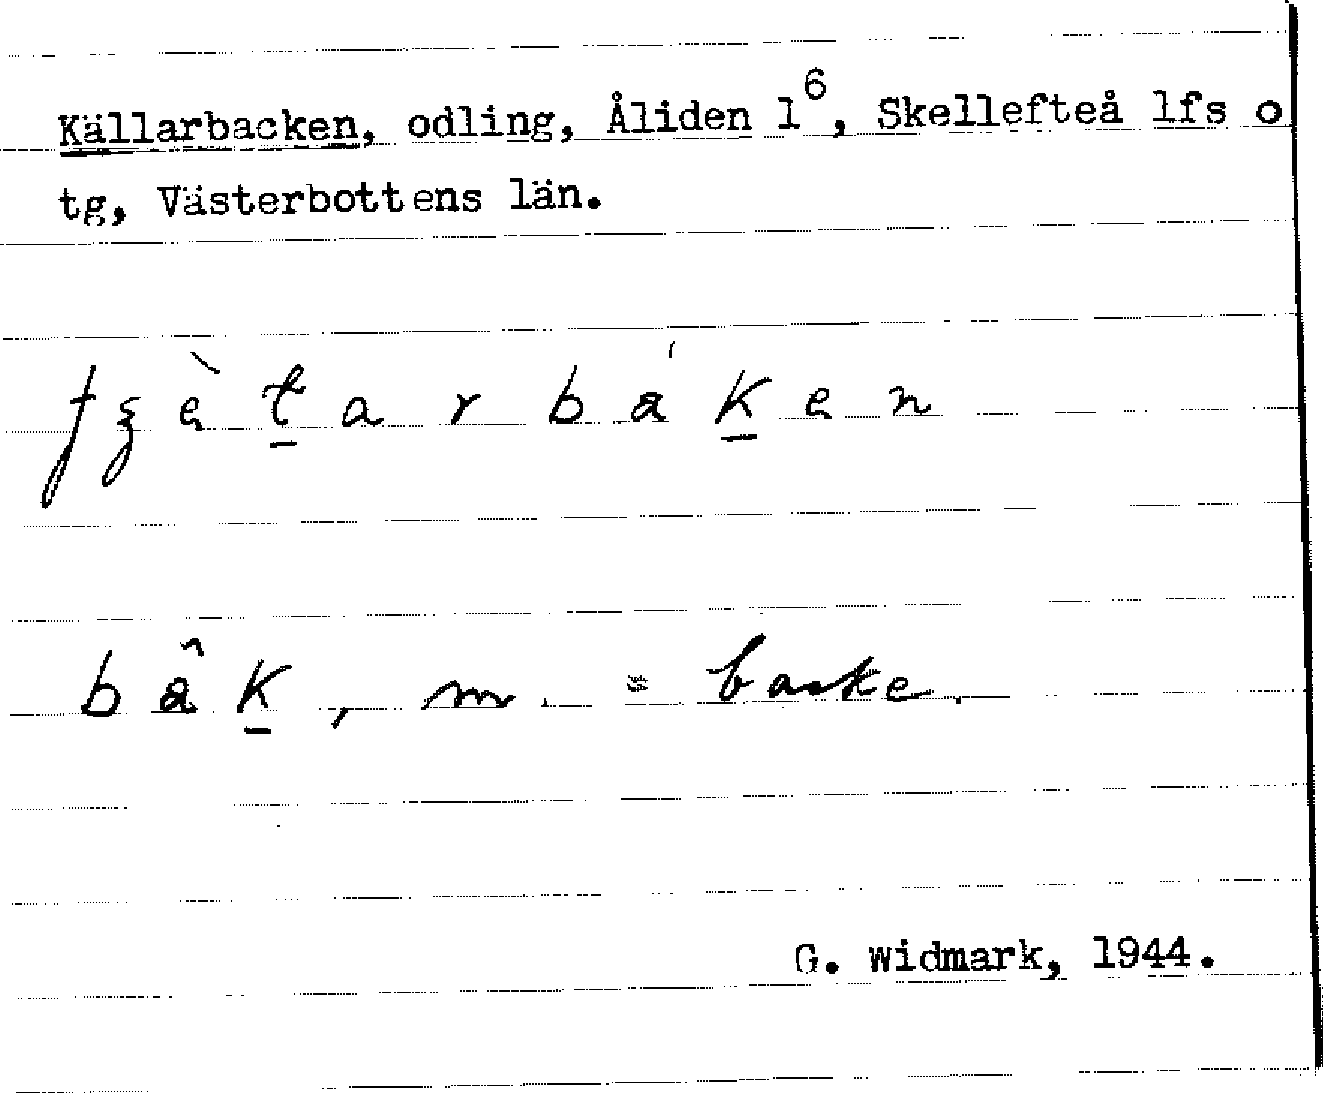 Källarbacken, odling, Åliden 1⁶, Skellefteå lfs o
tg, Västerbottens län.
bâk̲, m. = backe.
G. Widmark, 1944.